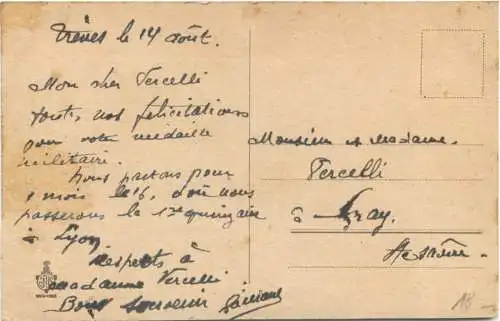 Trèves le 14 août.
Mon cher Vercelli
toutes nos félicitations
pour votre médaille
militaire.
Nous partons pour
1 mois le 6, dont nous
passerons la 1re quinzaine
à Lyon
Respects à
madame Vercelli
Bons souvenirs
Monsieur et Madame.
Vercelli
à Gray.
Hte Saône.
18 -